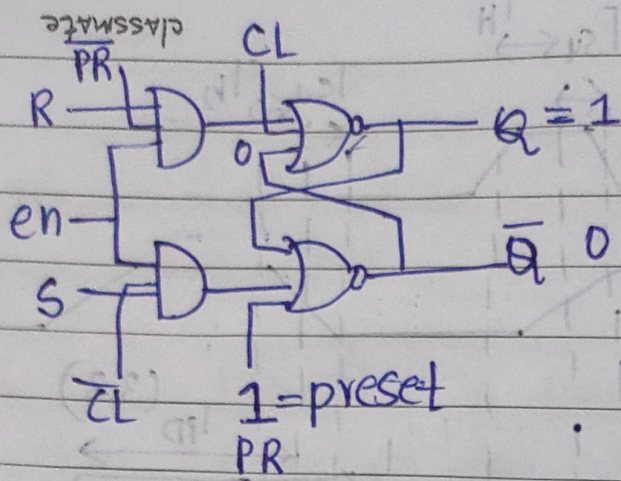 classmate
P̅R̅ CL
R
0 Q = 1
en
S Q̅ 0
C̅L̅ 1 = preset
PR